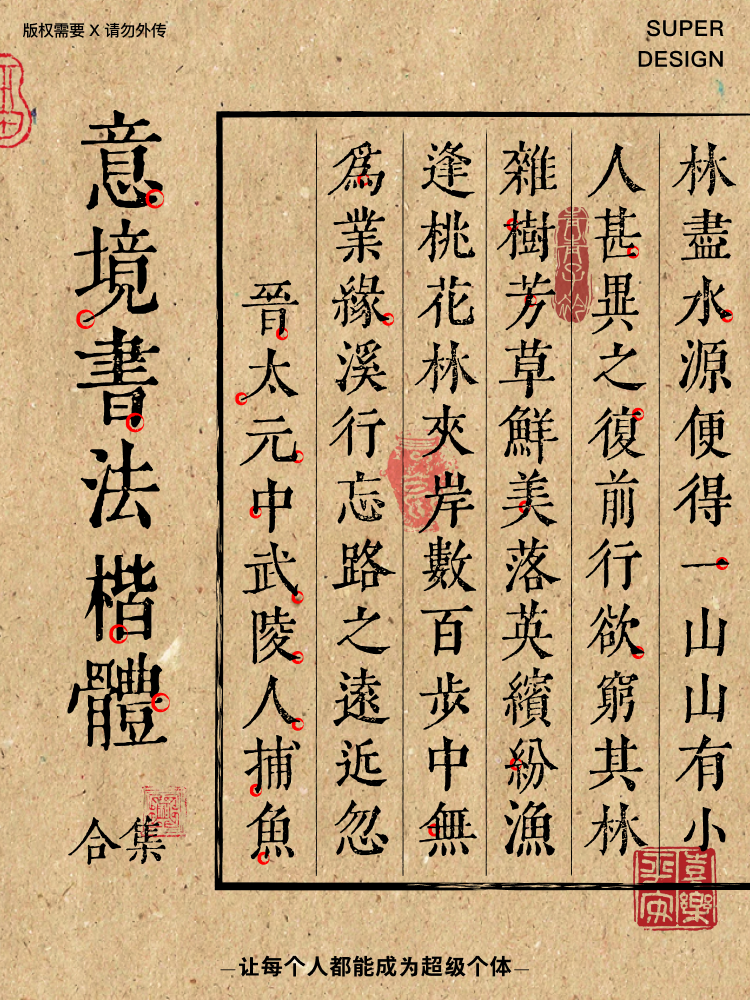 版权需要 X 请勿外传
SUPER
DESIGN
意境書法楷體
合集
晉太元中武陵人捕魚
爲業緣溪行忘路之遠近忽
逢桃花林夾岸數百步中無
雜樹芳草鮮美落英繽紛漁
人甚異之復前行欲窮其林
林盡水源便得一山山有小
青青子衿
喜樂
平安
—让每个人都能成为超级个体—